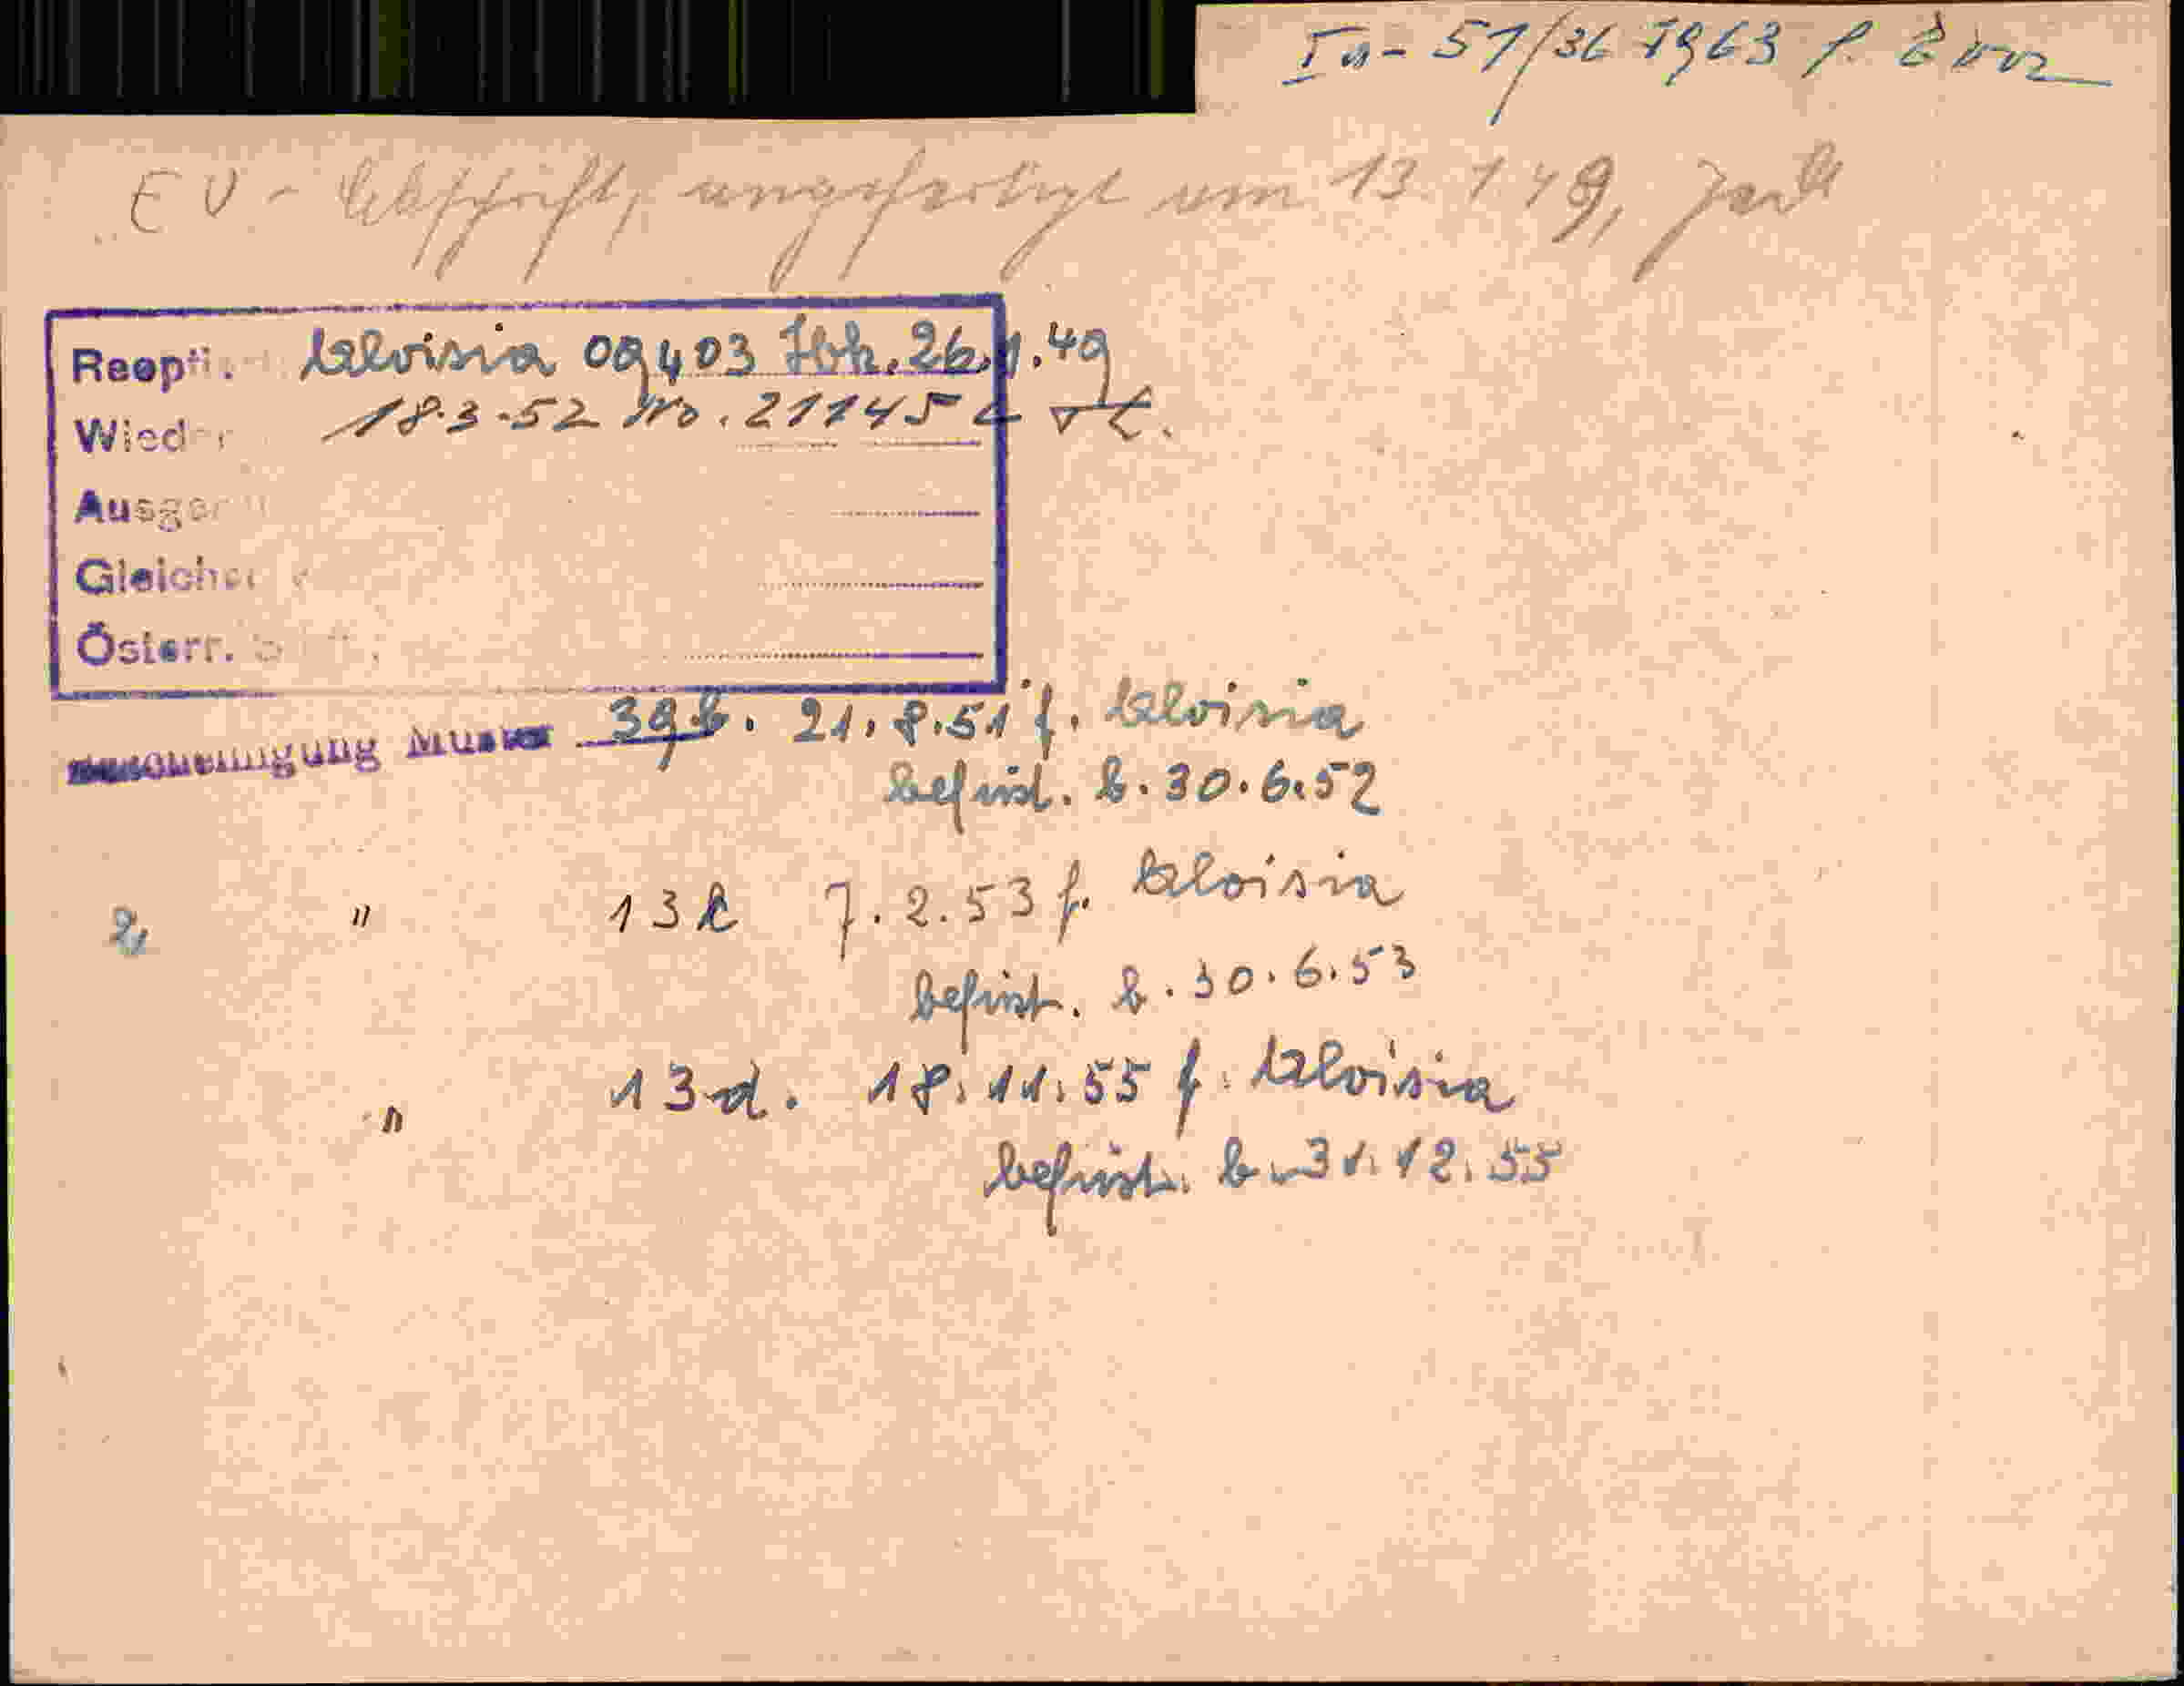 Ia - 51/36 1963 f.
EV - Abschrift, angefertigt am 13. 1. 49,
Reopti. Aloisia 09403 Ibk. 26.1.49
Wieder 18.3.52 No. 211454
Ausge
Gleich
Österr.
Bescheinigung Muster 39b. 21.8.51 f. Aloisia
befrist. b. 30.6.52
2 " 13b 7.2.53 f. Aloisia
befrist. b. 30.6.53
" 13d. 18.11.55 f. Aloisia
befrist. b. 31.12.55